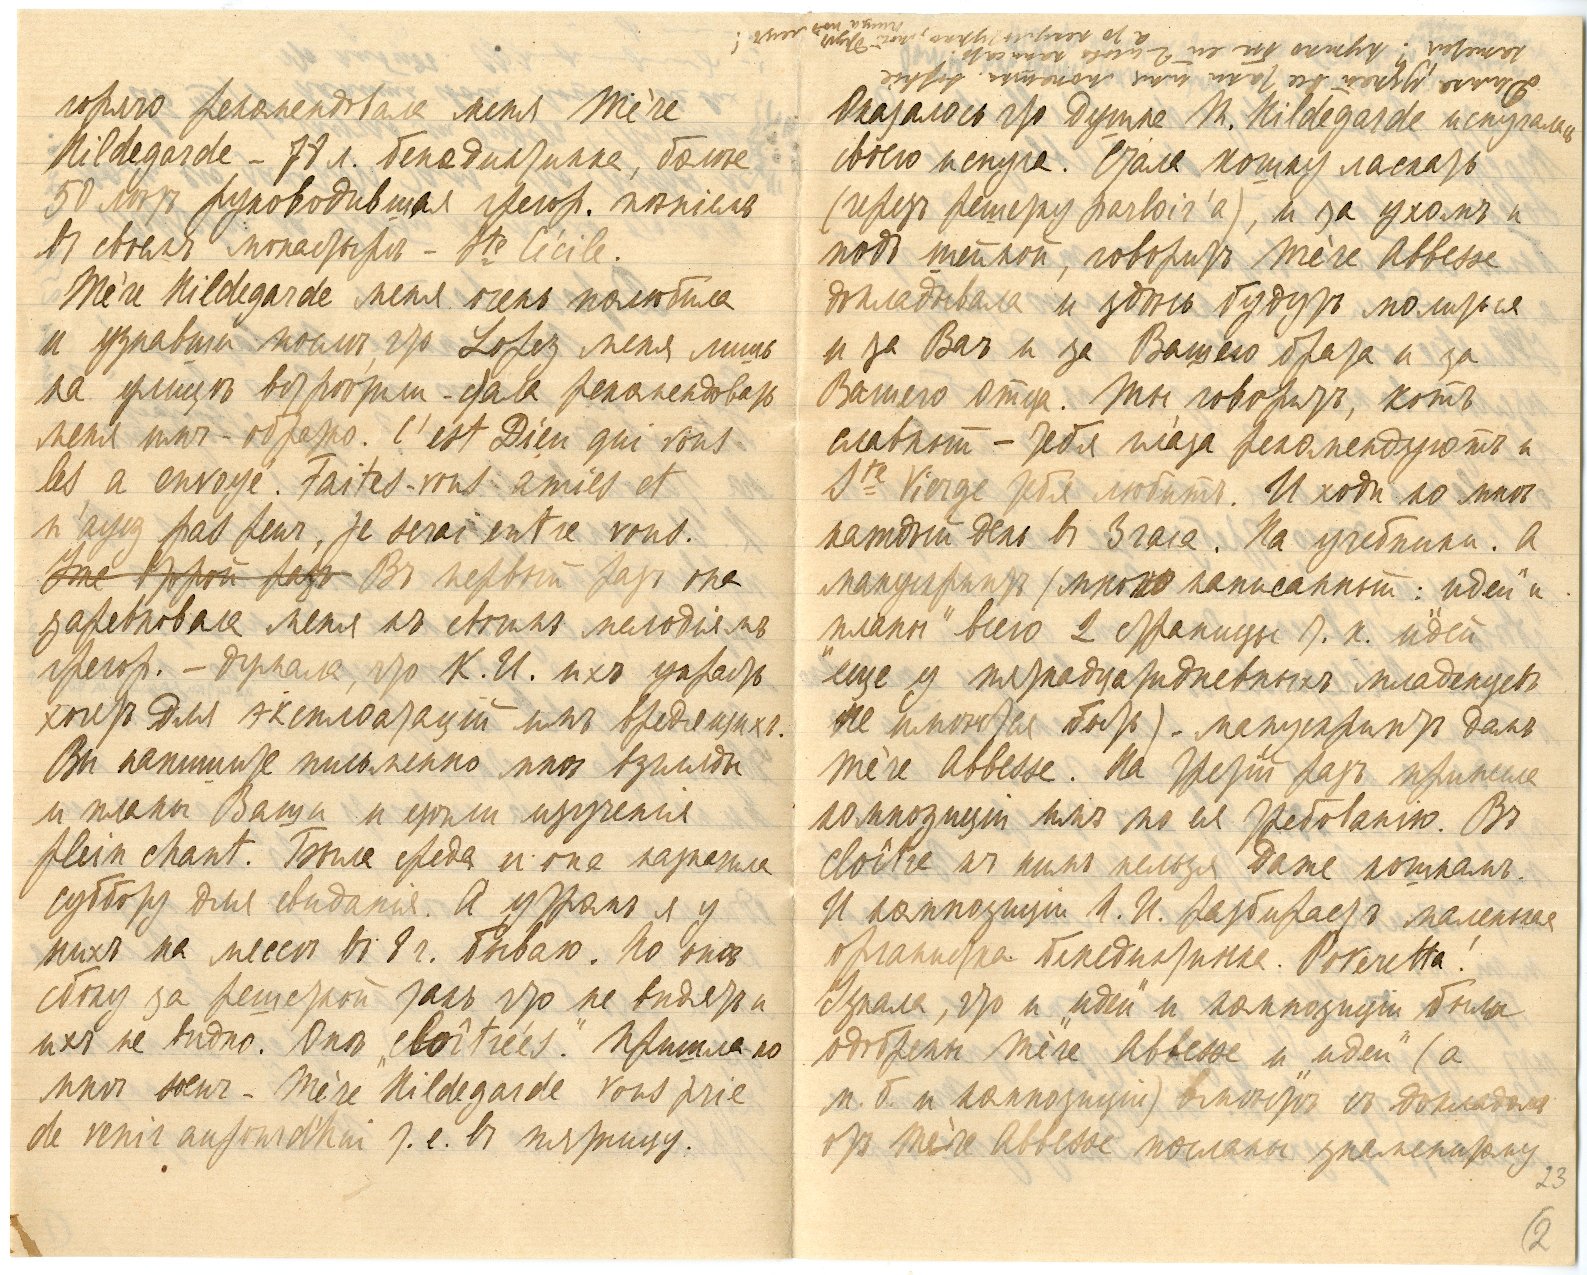 горячо рекомендовала меня Mère
Hildegarde – 78 л. бенедиктинка, болѣе
50 лѣтъ руководившая грегор. пѣніемъ
въ своемъ монастырѣ – Ste Cécile.
Mère Hildegarde меня очень полюбила
и узнавши что Lopez меня лишь
на улицѣ встрѣтили – стала рекомендовать
меня имъ – обратно. C'est Dieu qui vous
les a envoyé. Faites-vous amies et
n'ayez pas peur, je serai entre vous.
Въ первый разъ она
заревновала меня къ своимъ мелодіямъ
грегор. – думала, что К.И. ихъ украсть
хочетъ для эксплоатацій имъ вредящихъ.
Вы напишите письменно мнѣ взгляды
и планы Ваши и цѣли изученія
plein chant. Была среда и она назначила
субботу для свиданія. А утромъ я у
нихъ на мессѣ въ 8 г. бываю. Но онѣ
сбоку за решеткой такъ что не видятъ и
ихъ не видно. Онѣ „cloîtrées". Пришла ко
мнѣ soeur – Mère Hildegarde vous prie
de venir aujourd'hui т.е. въ пятницу.
Оказалось что душка M. Hildegarde испугалась
своего испуга. Стала кошку ласкать
(черезъ решетку parloir'а), и за ухомъ и
подъ шейкой, говоритъ Mère Abbesse
докладывала и здѣсь будутъ молиться
и за Васъ и за Вашего брата и за
Вашего отца. Ты говоритъ, котъ
славный – тебя глаза рекомендуютъ и
Ste Vierge тебя любитъ. И ходи ко мнѣ
каждый день въ 3 часа. На учебники. А
манускриптъ (мною написанный: „идеи" и
„планы" всего 2 страницы т. к. идей
еще у пятнадцатидневныхъ младенцевъ
не имѣется быть) – манускриптъ дамъ
Mère Abbesse. На третій разъ принесла
композиціи имъ по ея требованію. Въ
cloître къ нимъ нельзя даже кошкамъ.
И композиціи К.И. разбираетъ маленькая
органистка бенедиктинка. Poveretta!
Узнала, что и „идеи" и композиціи были
одобрены Mère Abbesse и „идеи" (а
м. б. и композиціи) вмѣстѣ съ докладомъ
отъ Mère Abbesse посланы знаменитому
23
(2